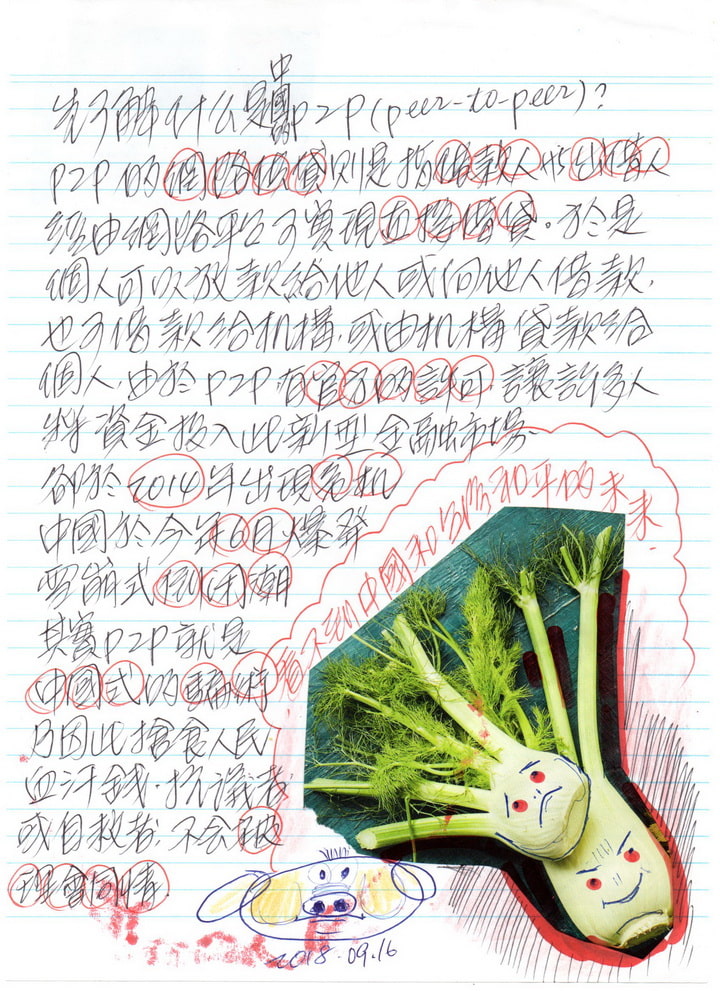 先了解什么是中國的P2P(peer-to-peer)?
P2P的網路借貸則是指借款人與出借人
經由網路平台可實現直接借貸。於是
個人可以放款給他人或向他人借款,
也可借款給机構,或由机構貸款給
個人,由於P2P,有官方的許可,讓許多人
將資金投入此新型金融市場、
卻於2014年出現危机
中國於今年6月爆發
雪崩式倒閉潮
其實P2P就是
中國式的騙術
乃因此搶食人民
血汗錢,抗議者
或自救者,不会被
理會同情.
看不到中國和台灣和平的未來.
2018.09.16